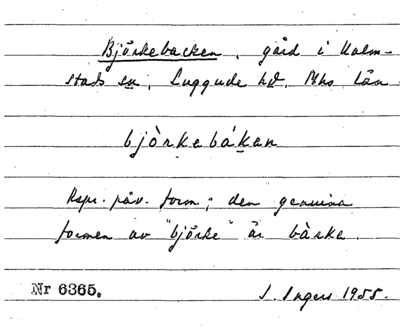 Björkebacken, gård i Kalm-
stads sn, Luggude hd. Mhs län.
bjòrkebákan
Rspr. påv. form; den genuina
formen av "björke" är bàrke.
Nr 6365.
I. Ingers 1955.